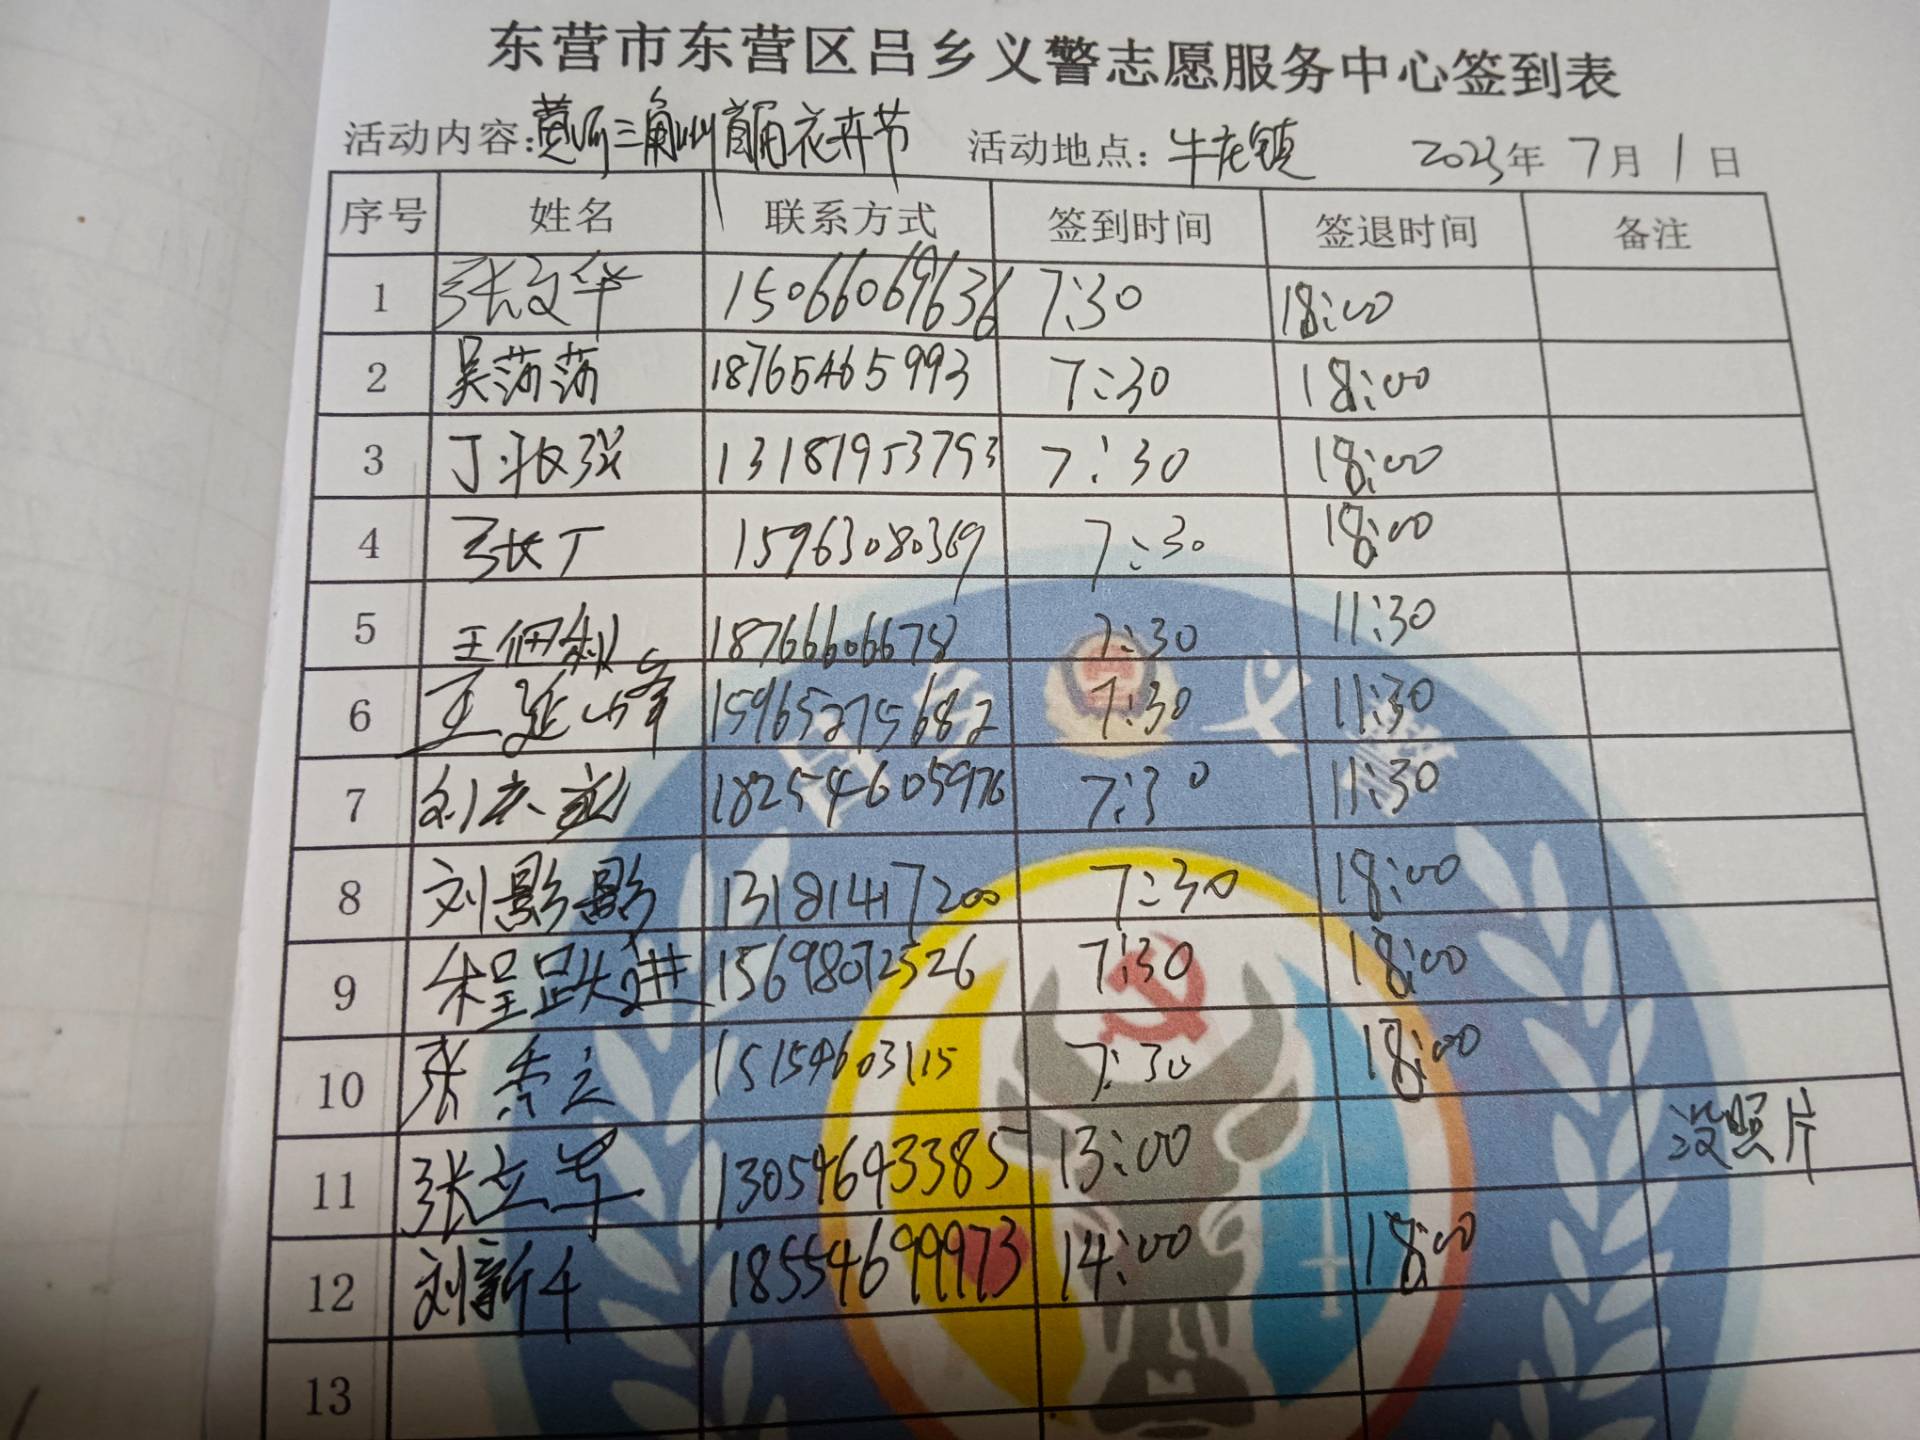 东营市东营区吕乡义警志愿服务中心签到表
活动内容：黄河三角洲首届花卉节 活动地点：牛庄镇 2023年7月1日
序号 姓名 联系方式 签到时间 签退时间 备注
1 张文华 15066069636 7:30 18:00
2 吴荡荡 18765465993 7:30 18:00
3 丁 13181953793 7:30 18:00
4 张丁 15963080369 7:30 18:00
5 王佃 18766606678 7:30 11:30
6 王延峰 15965275682 7:30 11:30
7 刘 18254605976 7:30 11:30
8 刘影影 13181417200 7:30 18:00
9 程跃进 15698072526 7:30 18:00
10 张 15154603115 7:30 18:00
11 张立华 13054643385 13:00 没照片
12 刘新 18554699973 14:00 18:00
13
吕乡义警